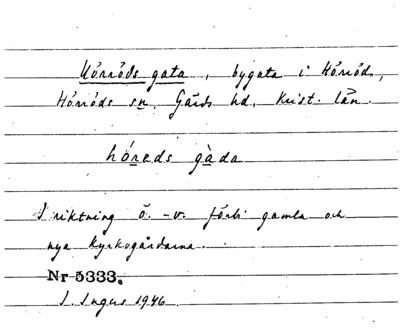 Hörröds gata, bygata i Hörröd,
Hörröds sn, Gärds hd, Krist. län.
hóreds gàda
I riktning ö. -v. förbi gamla och
nya kyrkogårdarna.
Nr 5333.
I. Ingers 1946.